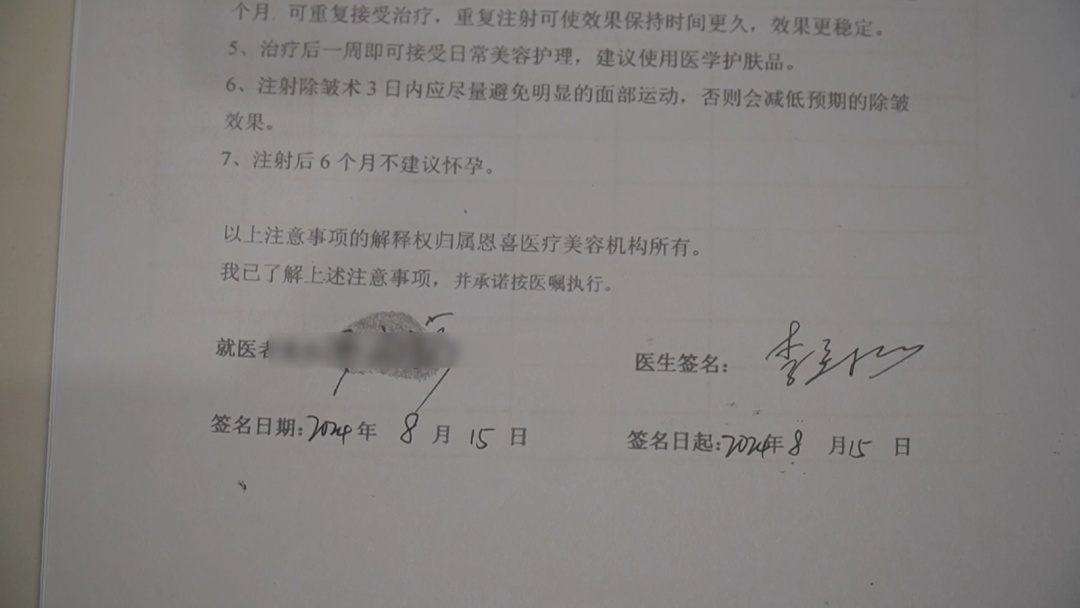 个月. 可重复接受治疗，重复注射可使效果保持时间更久，效果更稳定。
5、治疗后一周即可接受日常美容护理，建议使用医学护肤品。
6、注射除皱术 3 日内应尽量避免明显的面部运动，否则会减低预期的除皱
效果。
7、注射后 6 个月不建议怀孕。
以上注意事项的解释权归属恩喜医疗美容机构所有。
我已了解上述注意事项，并承诺按医嘱执行。
就医者 医生签名：李
签名日期：2024年 8 月 15 日 签名日起：2024年 8 月 15 日